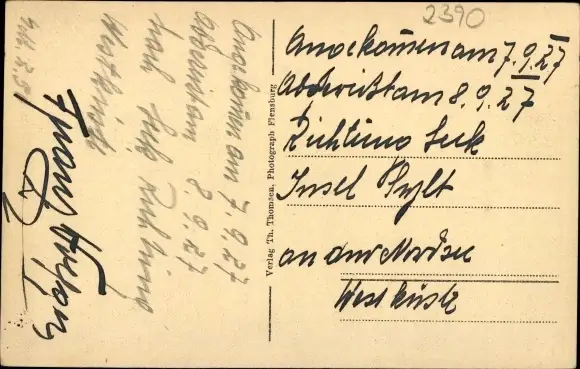 2390
Angekommen am 7.9.27
Abgereist am 8.9.27
Richtung Leck
Insel Sylt
an der Nordsee
Westküste
Verlag Th. Thomsen, Photograph Flensburg
Angekommen am 7.9.27
Abgereist am 8.9.27
nach Leck Richtung
Westküste
Franz